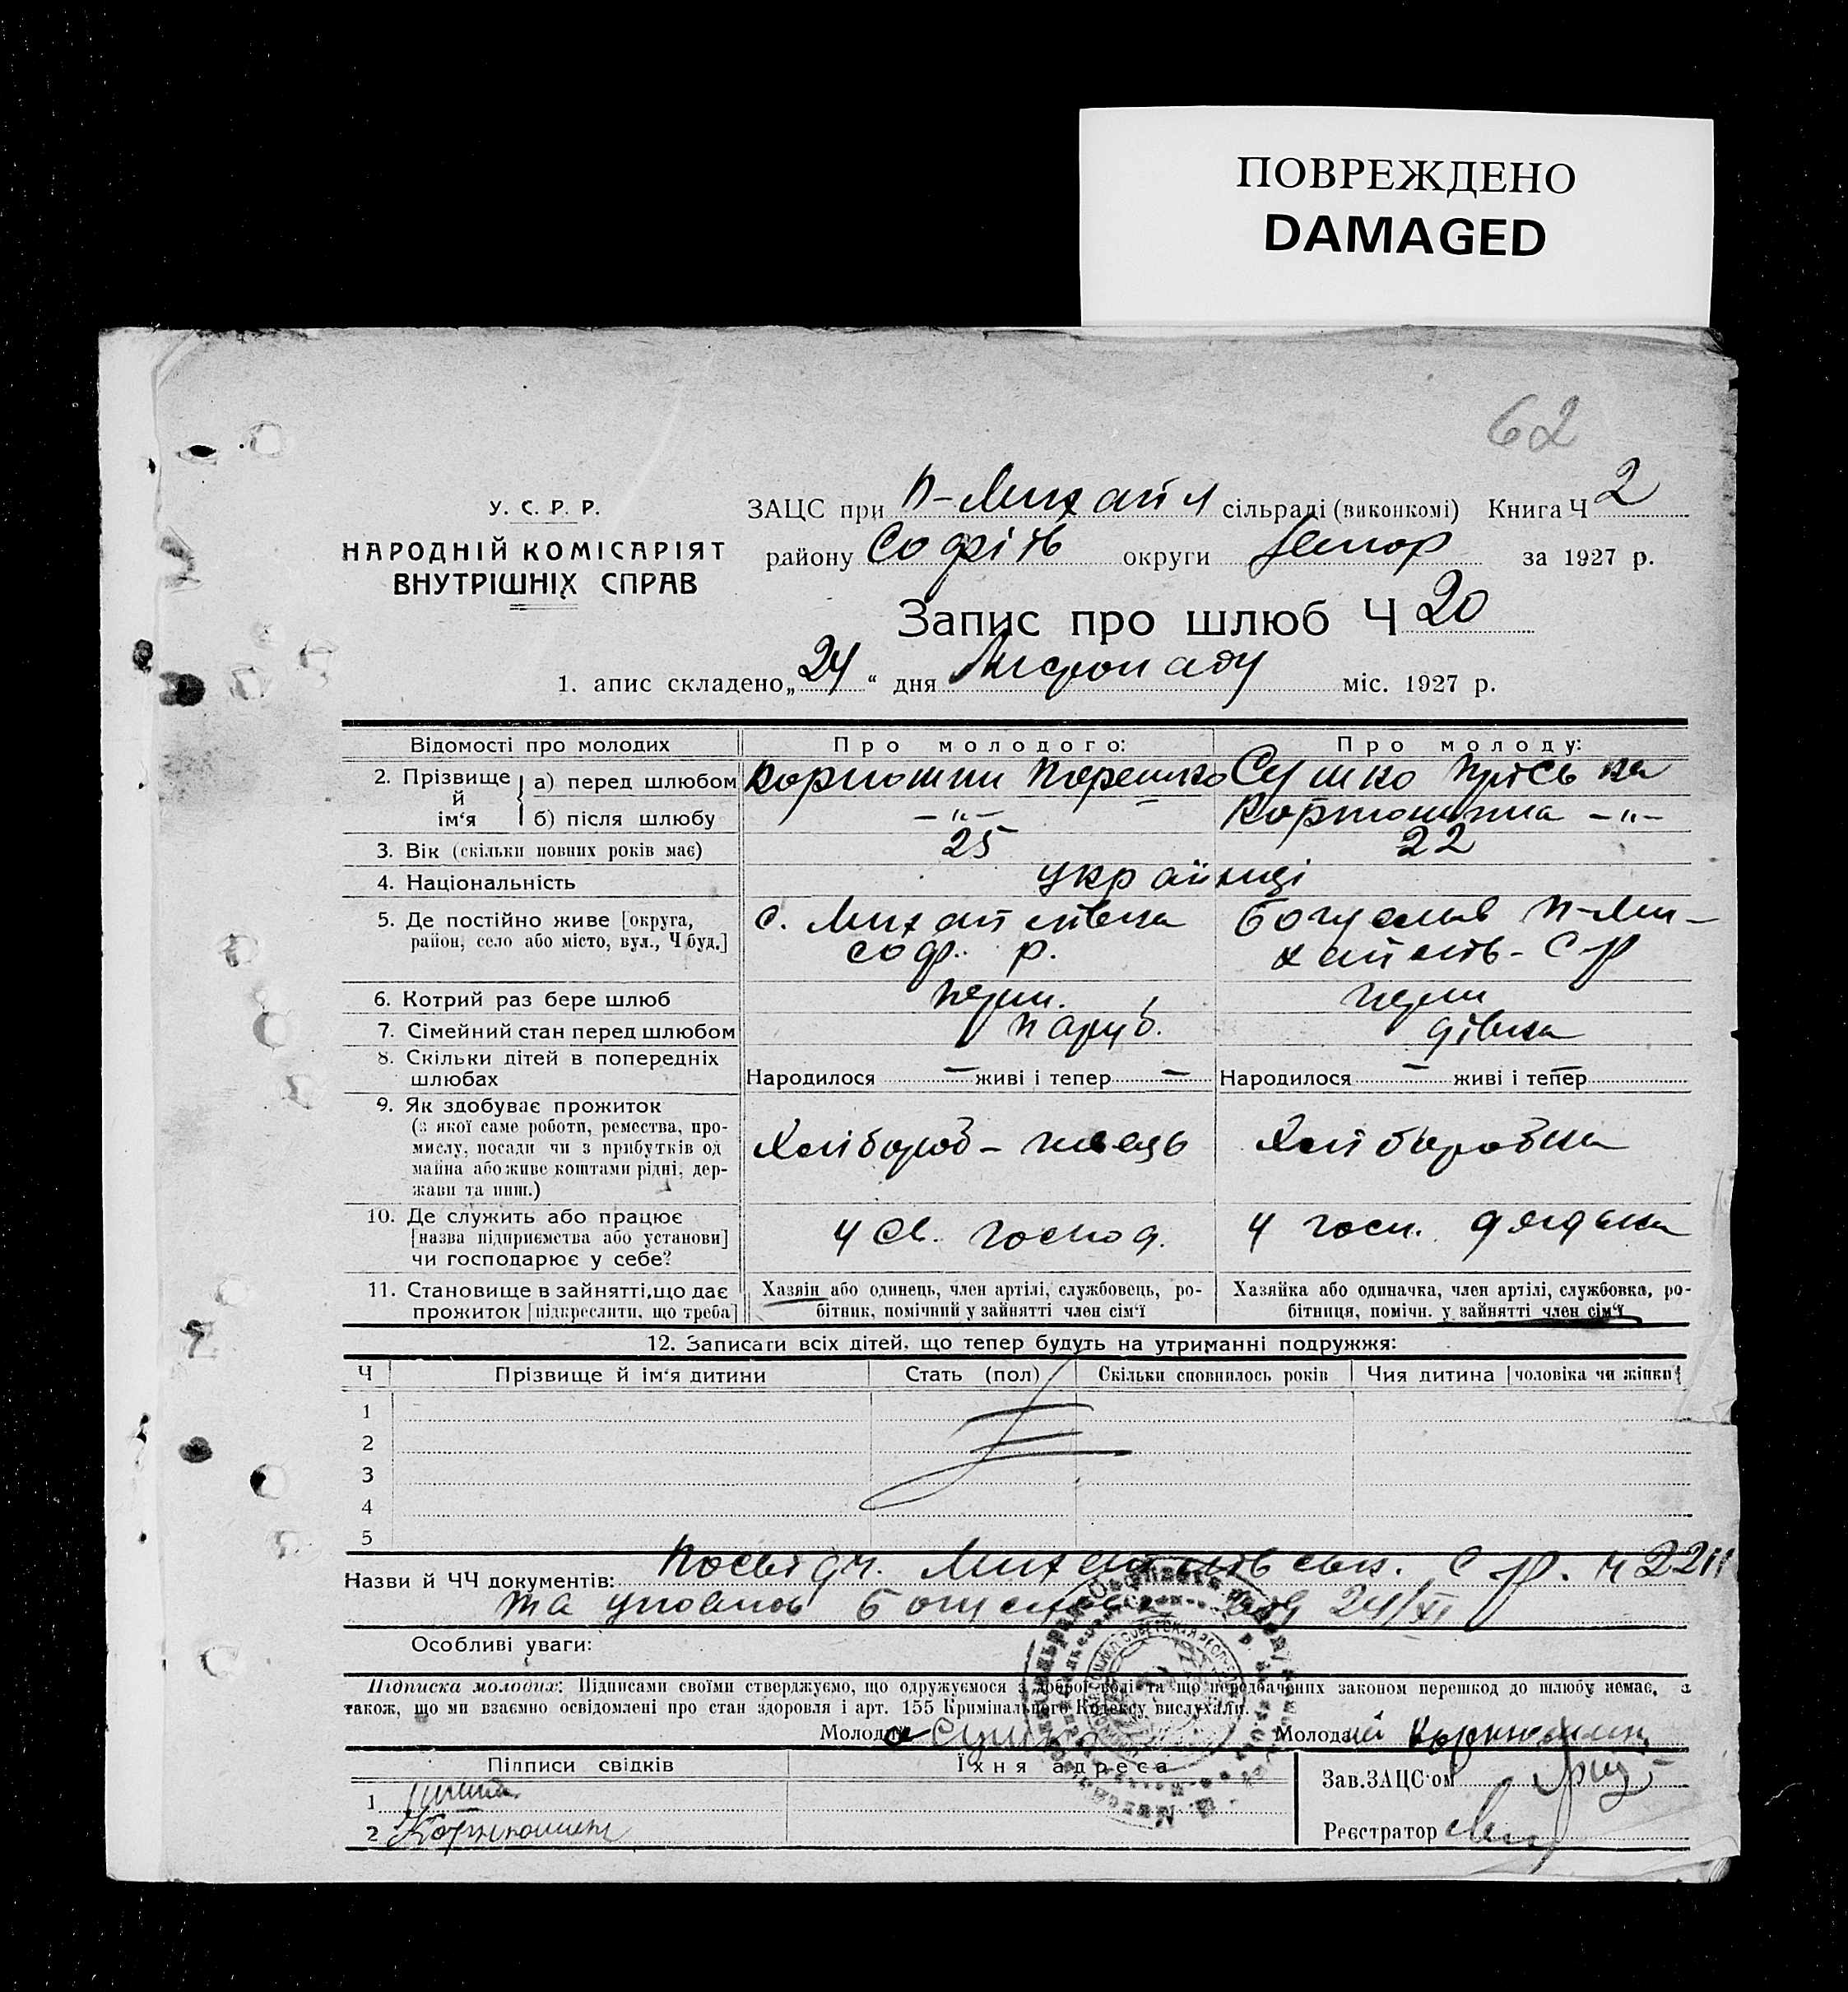 ПОВРЕЖДЕНО
DAMAGED
62
У. С. Р. Р.
НАРОДНІЙ КОМІСАРІЯТ
ВНУТРІШНІХ СПРАВ
ЗАЦС при П-Михайл сільраді (виконкомі) Книга Ч 2
району Софіїв округи за 1927 р.
Запис про шлюб Ч 20
1. апис складено „24“ дня Листопаду міс. 1927 р.
Відомості про молодих Про молодого: Про молоду:
2. Прізвище й ім‘я а) перед шлюбом Сушко
б) після шлюбу —"— —"—
3. Вік (скільки повних років має) 25 22
4. Національність українці
5. Де постійно живе [округа, район, село або місто, вул., Ч буд.]
с. Михайлівка Богуслав П-Ми-
соф. р. хайлів- С р
6. Котрий раз бере шлюб перш. перш
7. Сімейний стан перед шлюбом паруб. дівка
8. Скільки дітей в попередніх шлюбах Народилося — живі і тепер — Народилося — живі і тепер —
9. Як здобуває прожиток
(з якої саме роботи, ремества, про-
мислу, посади чи з прибутків од
майна або живе коштами рідні, дер-
жави та инш.)
Хлібороб- Хліборобка
10. Де служить або працює
[назва підприємства або установи]
чи господарює у себе?
у св. господ. у госп. дядька
11. Становище в зайнятті, що дає
прожиток [підкреслити, що треба]
Хазяін або одинець, член артілі, службовець, ро-
бітник, помічний у зайнятті член сім‘ї
Хазяйка або одиначка, член артілі, службовка, ро-
бітниця, помічн. у зайнятті член сім‘ї
12. Записати всіх дітей, що тепер будуть на утриманні подружжя:
Ч Прізвище й ім‘я дитини Стать (пол) Скільки сповнилось років Чия дитина [чоловіка чи жінки]
1
2
3
4
5
Назви й ЧЧ документів: Посвідч. Михайлівськ. С р. Ч
та уповнов 24/XI
Особливі уваги:
Підписка молодих: Підписами своїми стверджуємо, що одружуємося з доброї волі та що передбачених законом перешкод до шлюбу немає, а
також, що ми взаємно освідомлені про стан здоровля і арт. 155 Кримінального Кодексу вислухали.
Молод Сушко Молодий
Підписи свідків Їхня адреса
1
2
Зав. ЗАЦС‘ом
Реєстратор